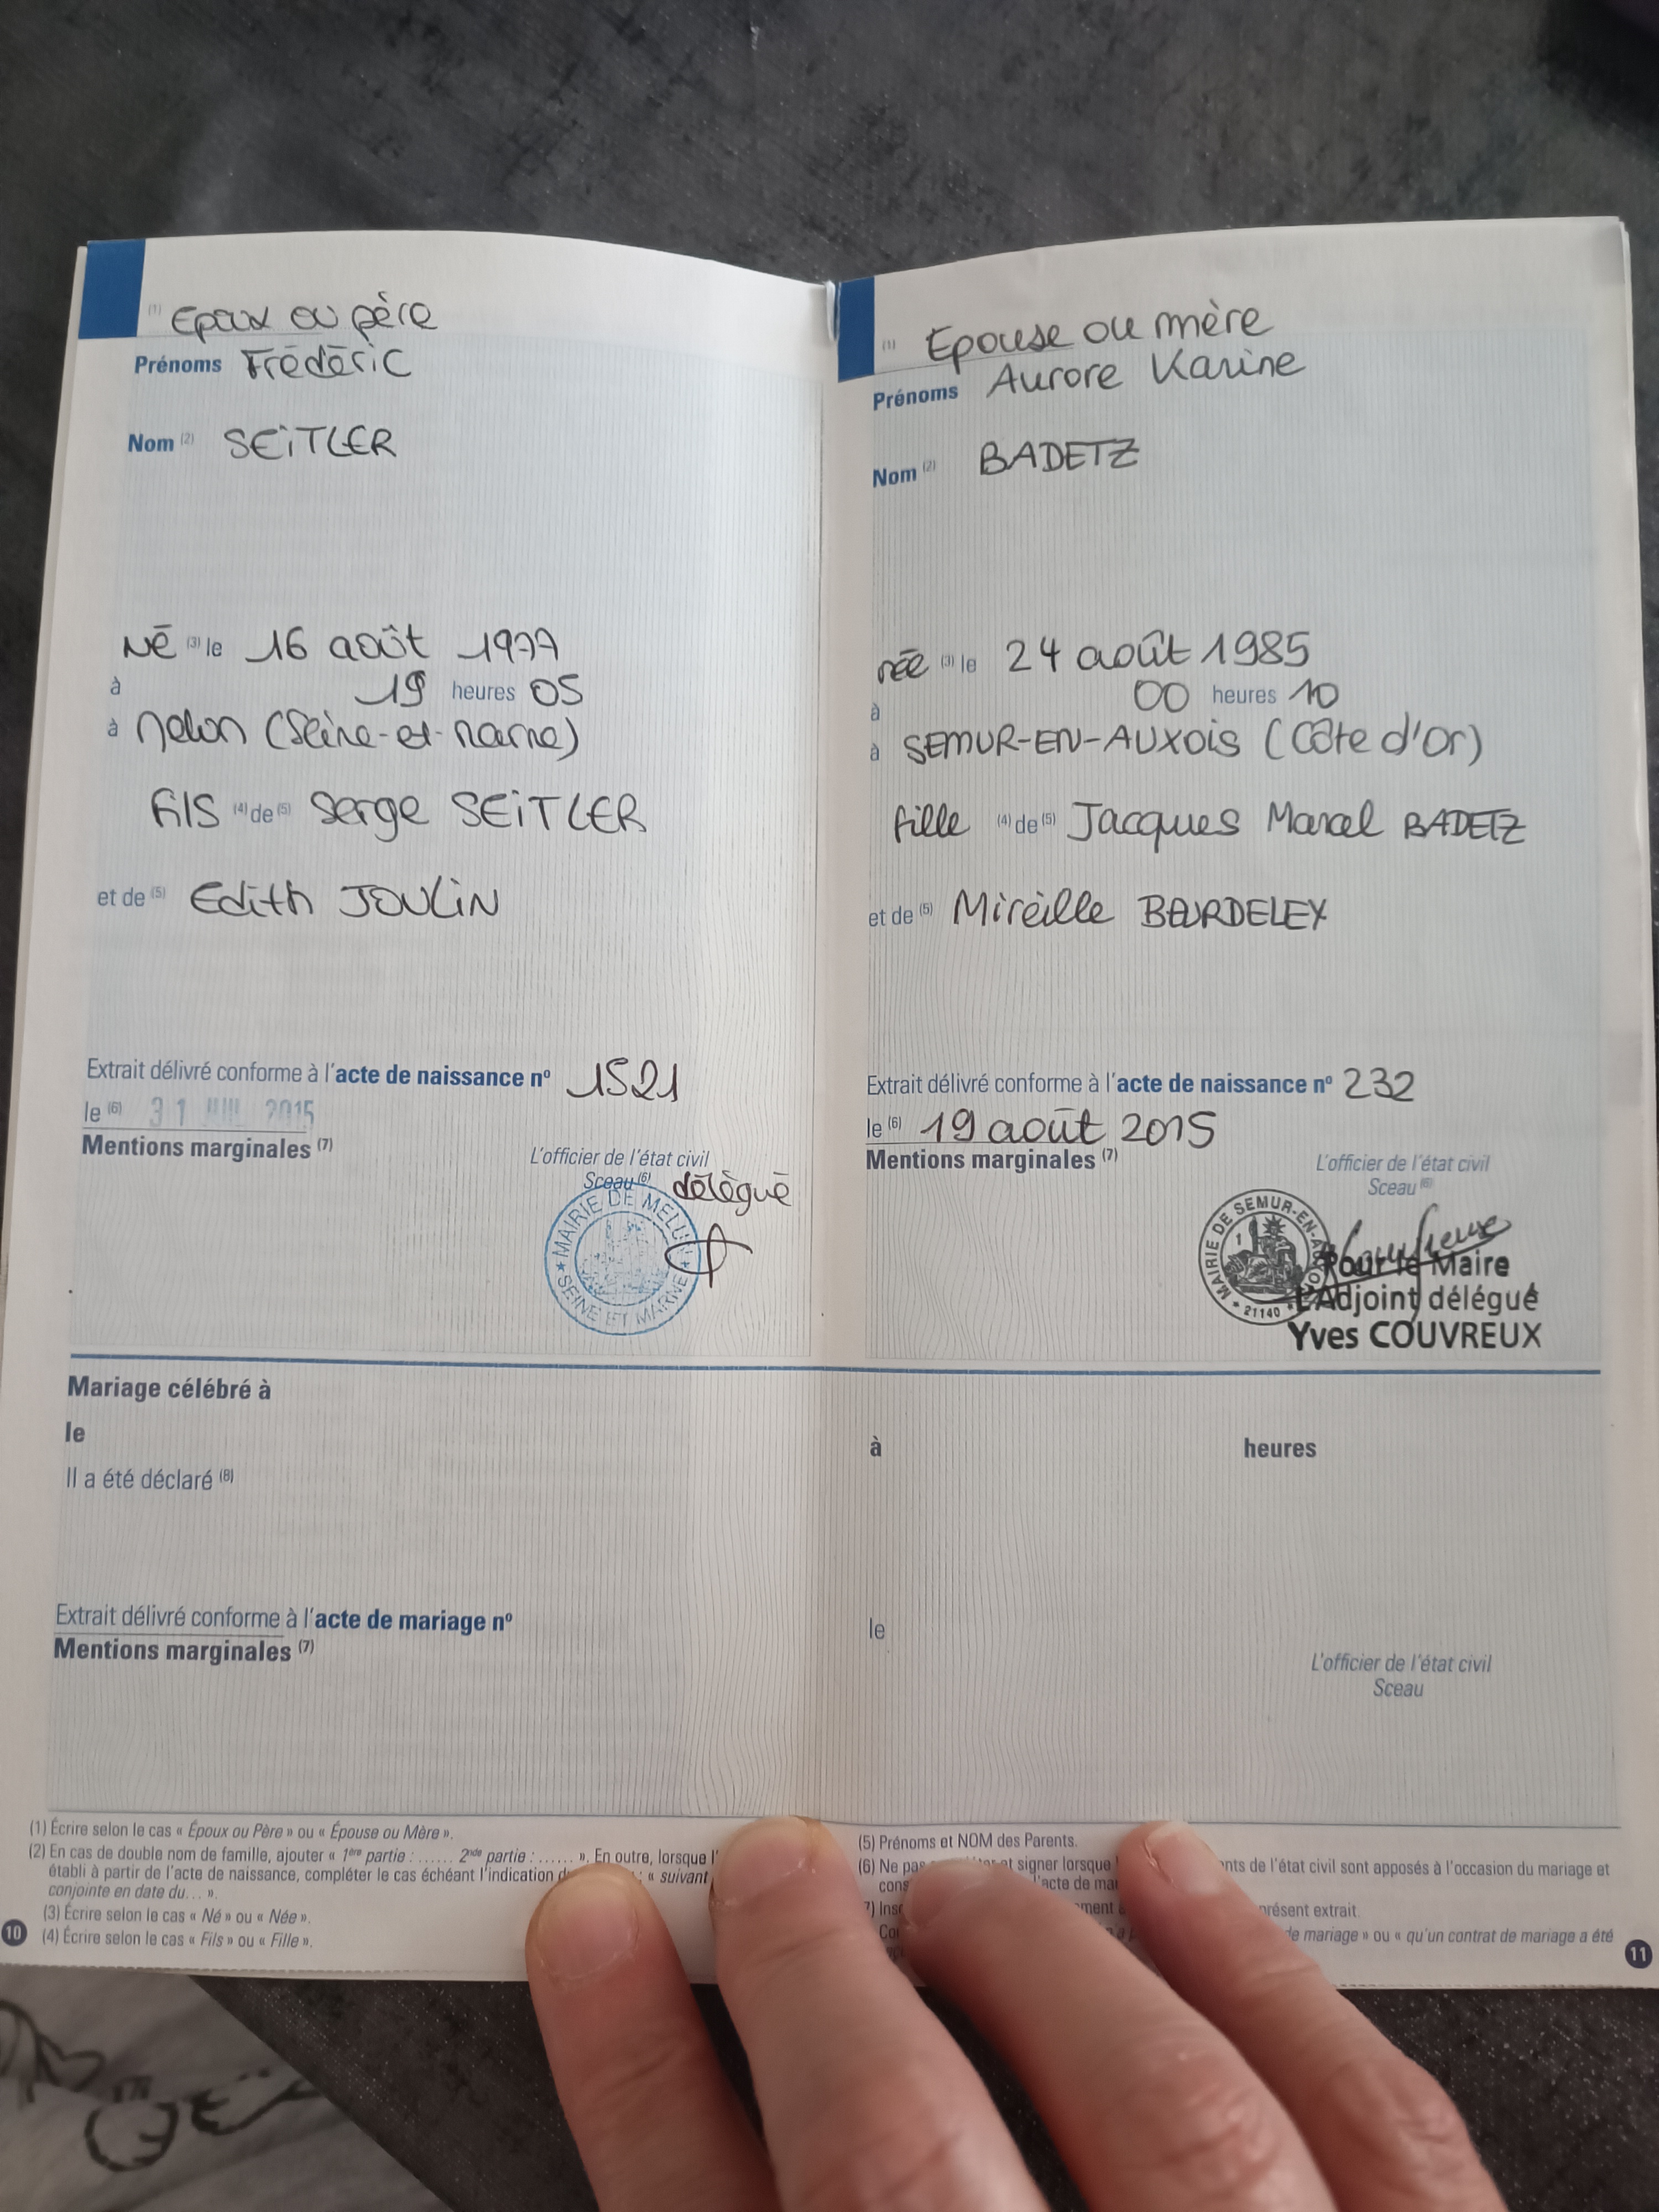 (1) Epoux ou père
Prénoms Frédéric
Nom (2) SEITLER
Né (3) le 16 août 1977
à 19 heures 05
à Melun (Seine-et-Marne)
fils (4) de (5) Serge SEITLER
et de (5) Edith JOULIN
Extrait délivré conforme à l'acte de naissance nº 1521
le (6) 31 JUIL 2015
Mentions marginales (7)
L'officier de l'état civil
Sceau (6) délégué
MAIRIE DE MELUN
SEINE ET MARNE
(1) Epouse ou mère
Prénoms Aurore Karine
Nom (2) BADETZ
née (3) le 24 août 1985
à 00 heures 10
à SEMUR-EN-AUXOIS (Côte d'Or)
fille (4) de (5) Jacques Marcel BADETZ
et de (5) Mireille BOURDELEY
Extrait délivré conforme à l'acte de naissance nº 232
le (6) 19 août 2015
Mentions marginales (7)
L'officier de l'état civil
Sceau (6)
MAIRIE DE SEMUR-EN-AUXOIS
21140
Pour le Maire
L'Adjoint délégué
Yves COUVREUX
Mariage célébré à
le à heures
Il a été déclaré (8)
Extrait délivré conforme à l'acte de mariage nº le
Mentions marginales (7)
L'officier de l'état civil
Sceau
(1) Écrire selon le cas « Époux ou Père » ou « Épouse ou Mère ».
(2) En cas de double nom de famille, ajouter « 1ère partie : ...... 2nde partie : ...... ». En outre, lorsque l'
établi à partir de l'acte de naissance, compléter le cas échéant l'indication : « suivant
conjointe en date du... ».
(3) Écrire selon le cas « Né » ou « Née ».
(4) Écrire selon le cas « Fils » ou « Fille ».
10
(5) Prénoms et NOM des Parents.
(6) Ne pas et signer lorsque de l'état civil sont apposés à l'occasion du mariage et
l'acte de
présent extrait.
de mariage » ou « qu'un contrat de mariage a été
11